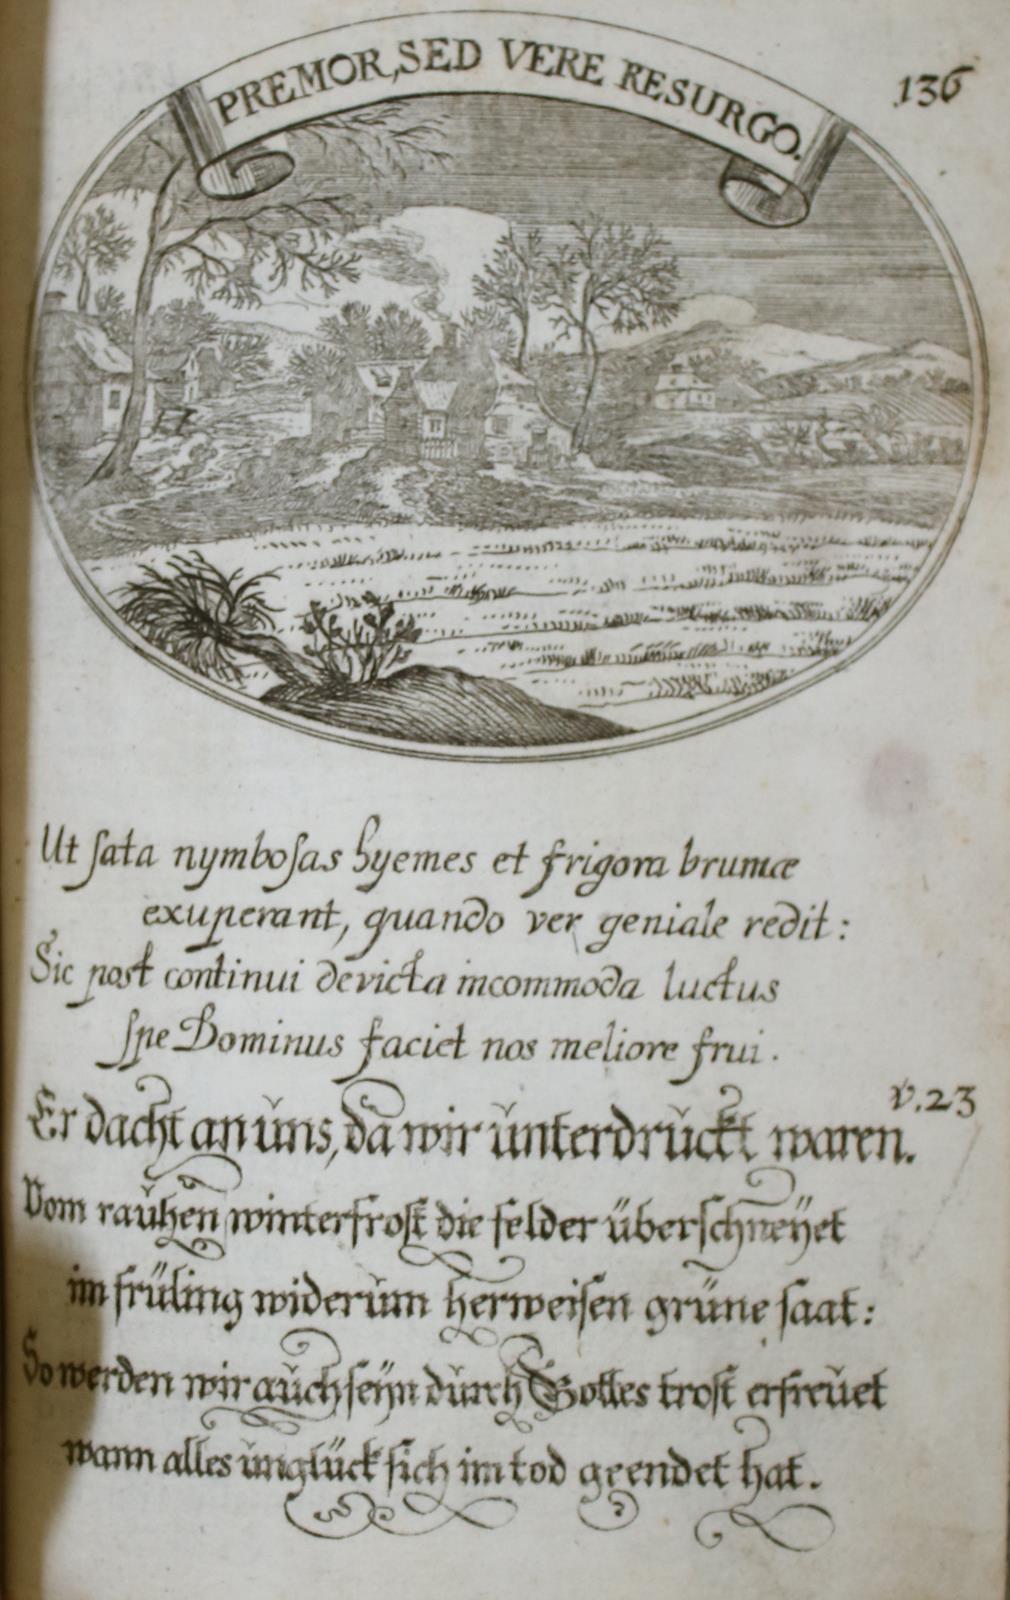 PREMOR, SED VERE RESURGO.
136
Ut ſata nymboſas hyemes et frigora brumæ
exuperant, quando ver geniale redit:
Sic post continui devicta incommoda luctus
ſpe Dominus faciet nos meliore frui.
v.23
Er dacht an ŭns, da wir ŭnterdrŭckt waren.
Vom raŭhen winterfroſt die felder überſchneÿet
im früling widerŭm herweiſen grüne ſaat:
So werden wir aŭch ſeÿn dŭrch Gottes troſt erfreŭet
wann alles ŭnglück ſich im tod geendet hat.